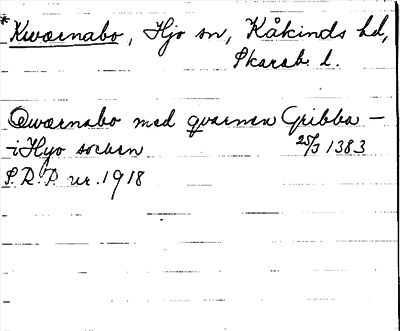 *Kwærnabo, Hjo sn, Kåkinds hd,
Skarab. l.
Qwærnabo med qvarnen Gribba –
i Hyo socken 25/3 1383
S.R.P. nr. 1918